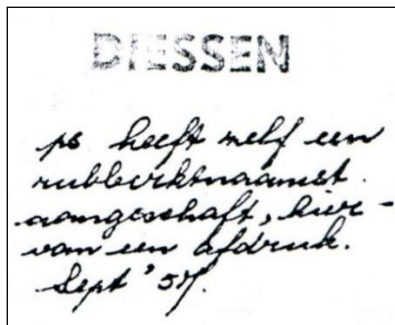 DIESSEN
ps heeft zelf een
rubberktnaamst.
aangeschaft, hier-
van een afdruk.
Sept '57.